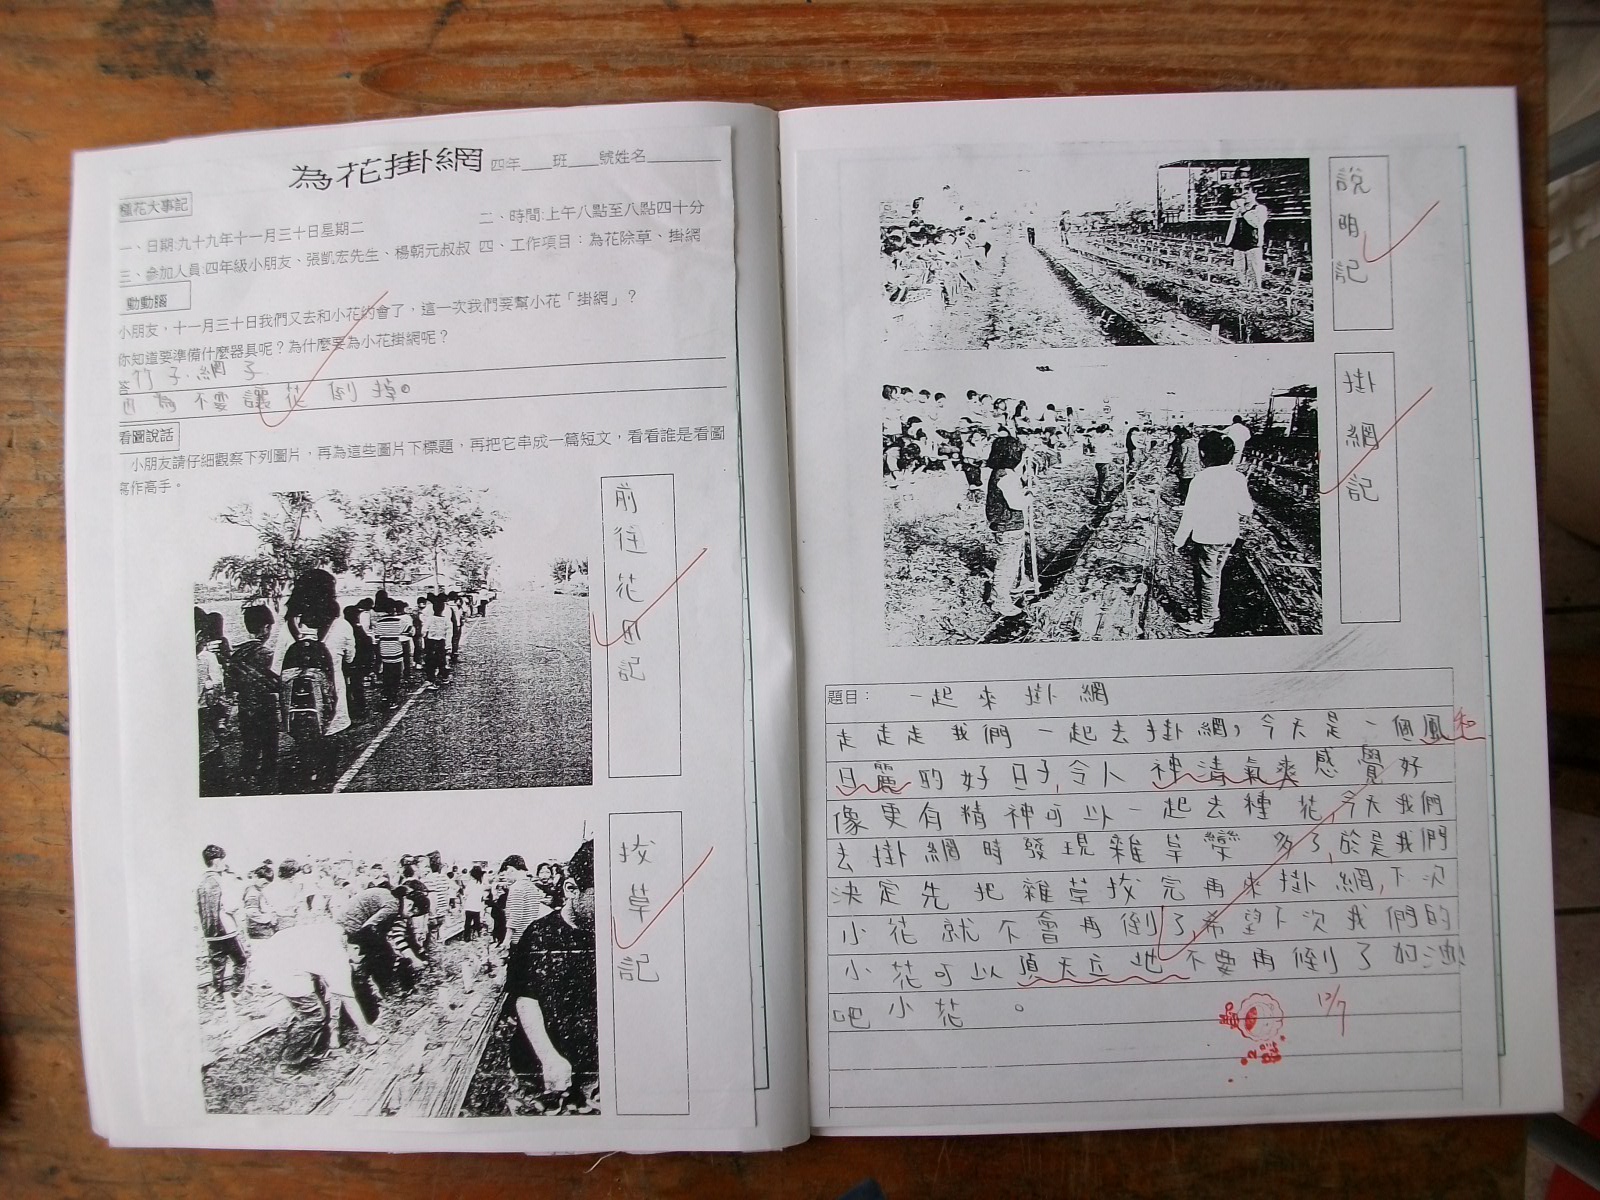 為花掛網 四年___班___號姓名________
種花大事記
一、日期:九十九年十一月三十日星期二
二、時間:上午八點至八點四十分
三、參加人員:四年級小朋友、張凱宏先生、楊朝元叔叔 四、工作項目：為花除草、掛網
動動腦
小朋友，十一月三十日我們又去和小花約會了，這一次我們要幫小花「掛網」？
你知道要準備什麼器具呢？為什麼要為小花掛網呢？
答竹子.網子.
因為不要讓花倒掉。
看圖說話
小朋友請仔細觀察下列圖片，再為這些圖片下標題，再把它串成一篇短文，看看誰是看圖
寫作高手。
前往花田記
拔草記
說明記
掛網記
題目： 一起來掛網
走走走我們一起去掛網，今天是一個風和
日麗的好日子,令人神清氣爽感覺好
像更有精神可以一起去種花,今天我們
去掛網時發現雜草變多了,於是我們
決定先把雜草拔完再來掛網,下次
小花就不會再倒了希望下次我們的
小花可以頂天立地不要再倒了加油
吧小花。
12/7